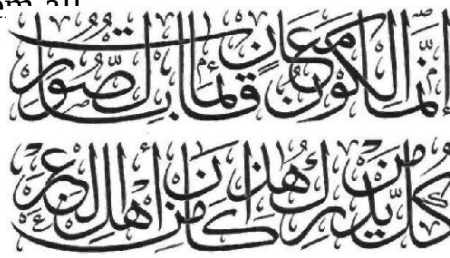 إنما الكون معان قائمات بالصور
كل من يدرك هذا كان من أهل العبر